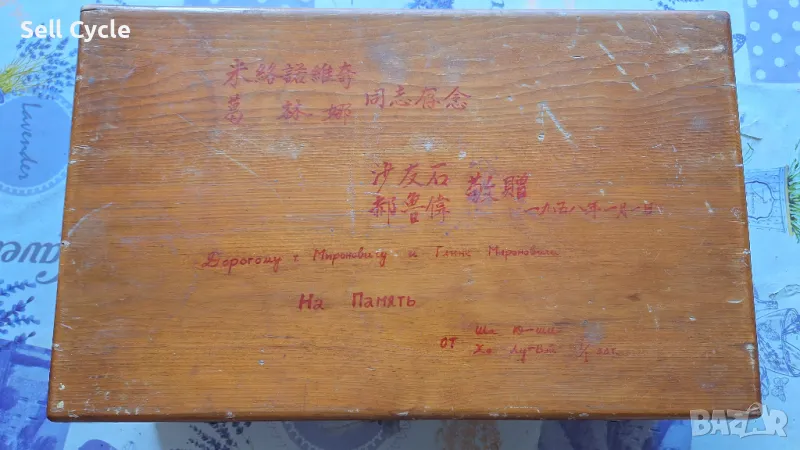 Sell Cycle
米絡諾維奇
葛林娜 同志存念
沙友石
郝魯偉 敬贈
一九五八年一月一日
Дорогому т Мироновичу и Глине
На Память
от Ша Ю-ши
Хо Лу-вэй
Lavender
BAZAR